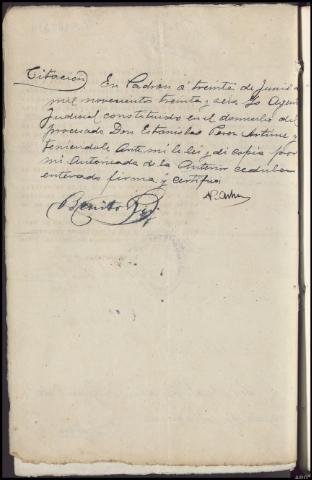 Citacion) En Padron á treinta de Junio de
mil novecientos treinta y seis Yo Agente
Judicial constituido en el domicilio del
procesado Don Estanislao Perez Artime y
teniendole ante mi le lei y di copia por
mi autorizada de la anterior cedula
enterado firma y certifico
Benito